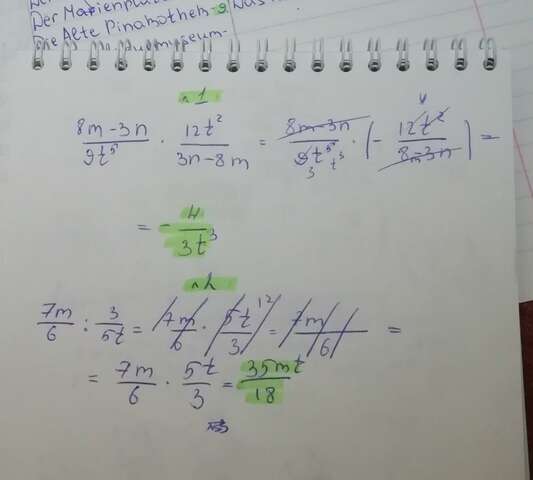 Der Marienpla
Die Alte Pinakothek
museum-
n 1
8m-3n/9t⁵ · 12t²/3n-8m = 8m-3n/9t⁵ · (- 12t²/8m-3n) =
3 t³ 4
= - 4/3t³
n 2
7m/6 : 3/5t = 7m/6 · 5t/3 = 7m/6 =
12
= 7m/6 · 5t/3 = 35mt/18